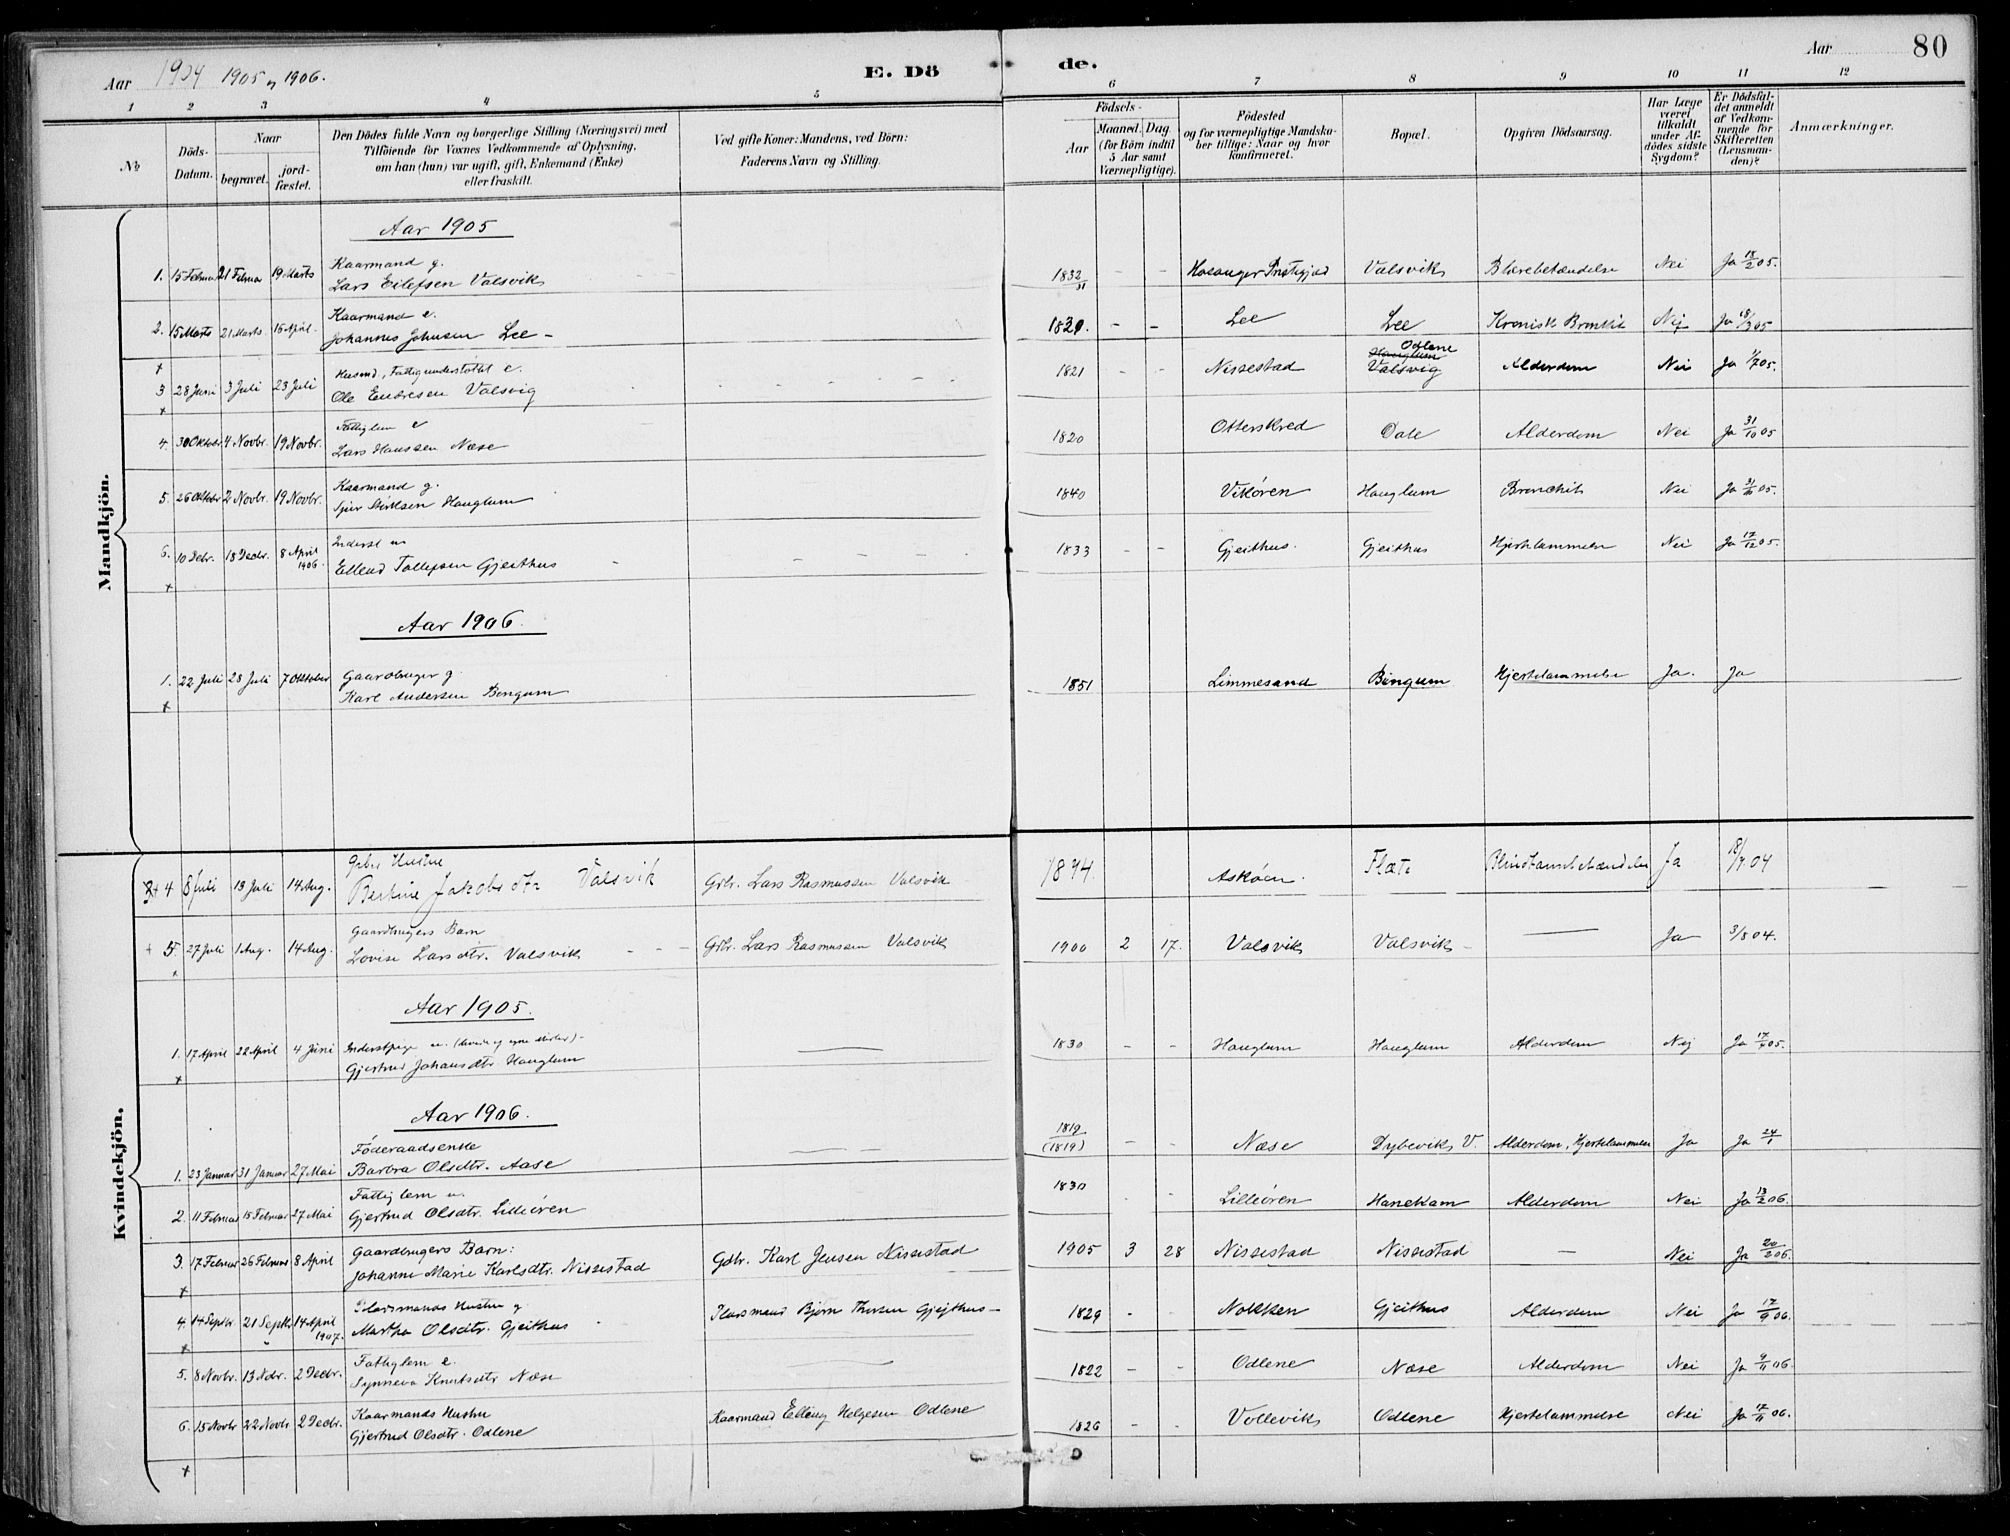 Aar 1904 1905 og 1906. E. Dö de. Aar 80
1 2 3 4 5 6 7 8 9 10 11 12
№
Döds-Datum.
Naar
begravet.
jord-fæstet.
Den Dödes fulde Navn og borgerlige Stilling (Næringsvei) med
Tilföiende for Voxnes Vedkommende af Oplysning,
om han (hun) var ugift, gift, Enkemand (Enke)
eller fraskilt.
Ved gifte Koner: Mandens, ved Börn:
Faderens Navn og Stilling.
Födsels-
Aar
Maaned. Dag.
(for Börn indtil
5 Aar samt
Værnepligtige).
Födested
og for værnepligtige Mandska-
ber tillige: Naar og hvor
konfirmeret.
Bopæl.
Opgiven Dödsaarsag.
Har Læge
været
tilkaldt
under Af-
dödes sidste
Sygdom?
Er Dödsfal-
det anmeldt
af Vedkom-
mende for
Skifteretten
(Lensman-
den)?
Anmærkninger.
Mandkjön.
Aar 1905
Kaarmand g.
1. 15 Februar 21 Februar 19 Marts Lars Eilefsen Valsvik 1832 - - Hosanger Valsvik Blærebetændelse Nei Ja 18/2 05.
Kaarmand e.
2. 15 Marts 21 Marts 16 April Johannes Johnsen Lee - - - Lee Lee Kronisk Bronkit Nej Ja 18/3 05
Husmd, Fattigunderstøttet e. Odlene
3 28 Juni 3 Juli 23 Juli Ole Endresen Valsvig 1821 - - Nissestad Valsvig Alderdom Nei Ja 1/7 05.
Fattiglem e
4. 30 Oktober 4 Novbr. 19 Novbr. Lars Hanssen Næse 1820 Otterskred Dale Alderdom Nei Ja 31/10 05
Kaarmand g.
5. 26 Oktober 2 Novbr. 19 Novbr. Sjur Hauglum 1840 Vikören Hauglum Bronchit Nei Ja 31/10 05.
Inderst u.
6. 10 Debr. 18 Decbr. 8 April 1906. Ellend Tollefsen Gjeithus 1833 - - Gjeithus. Gjeithus Hjertelammelse Nei Ja 17/12 05.
Aar 1906.
Gaardbruger g.
1. 22 Juli 28 Juli 7 Oktober Karl Andersen Bengum 1851 Limmesand Bengum Hjertelammelse Ja. Ja
Kvindekjön.
Grbr Hustru
4 8 Juli 13 Juli 14 Aug. Bertine Jakobsdtr Valsvik Gdbr. Lars Rasmussen Valsvik 1874. Askøen. Flæte Blindtarmsbetændelse Ja 18/7 04
Gaardbrugers Barn
5 27 Juli 1 Aug. 14 Aug. Lovise Larsdtr. Valsvik Gdbr. Lars Rasmussen Valsvik 1900 2 17. Valsvik Valsvik Ja 3/8 04.
Aar 1905.
1. 17 April 22 April 4 Juni Gjertrud Johansdtr Hauglum 1830 - - Hauglum Hauglum Alderdom Nej Ja 17/4 05.
Aar 1906.
Føderaadsenke
1. 23 Januar 31 Januar 27 Mai Barbra Olsdtr. Aase 1819 (1819) - - Næse Dybevik V. Alderdom, Hjertelammelse Ja Ja 24/1
Fattiglem u.
2. 11 Februar 15 Februar 27 Mai Gjertrud Olsdtr. Lilleören 1830 - - Lilleören Hanekam Alderdom Nei Ja 13/2 06.
Gaardbrugers Barn:
3. 17 Februar 26 Februar 8 April Johanne Marie Karlsdtr. Nissestad Gdbr. Karl Jensen Nissestad 1905 3 28 Nissestad Nissestad - Nei Ja 20/2 06.
Pladsmands Hustru g
4. 14 Septbr. 21 Septbr 14 April 1907. Martha Olsdtr. Gjeithus Pladsmand Björn Gjeithus - 1829 - - Nokken Gjeithus Alderdom Nei Ja 17/9 06.
Fattiglem e.
5. 8 Novbr. 13 Novbr. 2 Decbr. Synneva Knutsdtr Næse 1822 - - Odlene Næse Alderdom Nei Ja 9/11 06.
Kaarmands Hustru
6. 15 Novbr 22 Novbr 2 Decbr. Gjertrud Olsdtr. Odlene Kaarmand Elling Helgesen Odlene 1826 - - Vollevik Odlene Hjertelammelse Nei Ja 17/11 06.